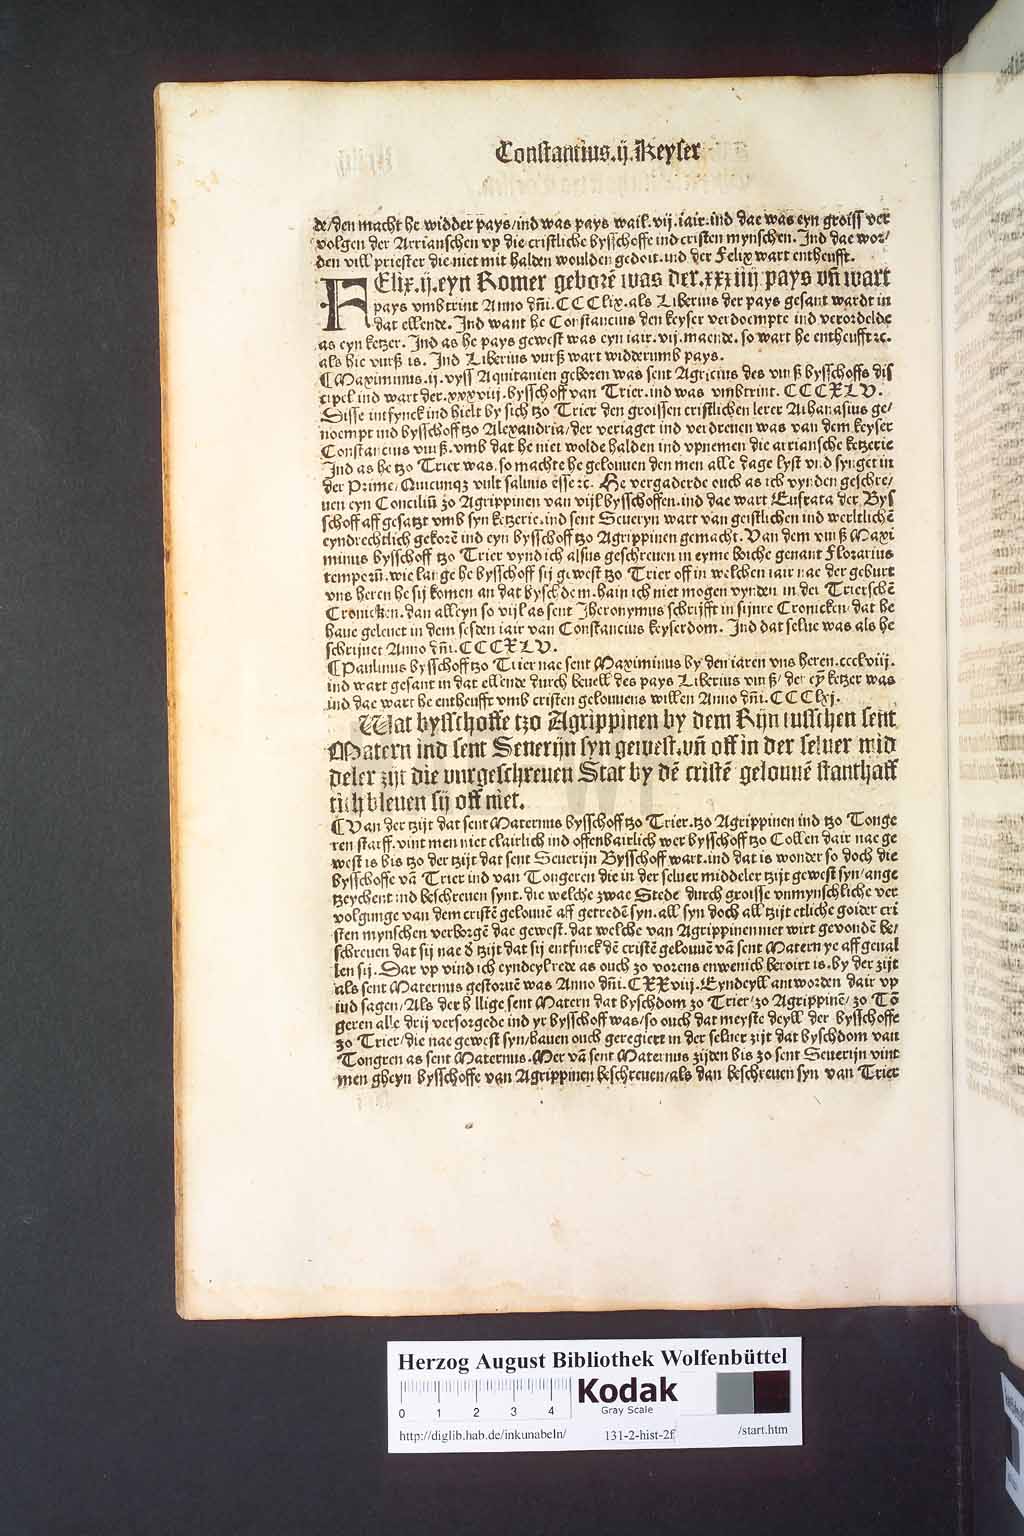 Constantius.ij.Keyser
de/den macht he widder pays/ind was pays wail.vij.iair.ind dae was eyn groiss ver
volgen der Arrianschen vp die cristliche bysschoffe ind cristen mynschen. Ind dae wor/
den vill priester die niet mit halden woulden gedoit.ind der Felix wart entheufft.
FElix.ij.eyn Romer geborē was der.xxxiiij pays vñ wart
pays vmbtrint Anno dñi.CCClix.als Liberius der pays gesant wardt in
dat ellende. Ind want he Constancius den keyser verdoempte ind verordelde
as eyn ketzer. Ind as he pays gewest was eyn iair.vij.maende. so wart he entheufft ꝛc.
als hie vurß is. Ind Liberius vurß wart widderumb pays.
¶Maximinus.ij.vyss Aquitanien geboren was sent Agricius des vurß bysschoffs dis
cipel ind wart der.xxxviij.bysschoff van Trier.ind was vmbtrint.CCCXLV.
Disse intfynck ind hielt by sich tzo Trier den groissen cristlichen lerer Athanasius ge/
noempt ind bysschoff tzo Alexandria/der veriaget ind verdreuen was van dem keyser
Constancius vurß.vmb dat he niet wolde halden ind vpnemen die arriansche ketzerie
Ind as he tzo Trier was.so machte he gelouuen den men alle dage lyst vnd synget in
der Prime/Quicunqꝫ vult saluus esse ꝛc. He vergaderde ouch as ich vynden geschre/
uen eyn Conciliū zo Agrippinen van vijl bysschoffen.ind dae wart Eufrata der Bys
schoff aff gesatzt vmb syn ketzerie.ind sent Seueryn wart van geistlichen ind werltlichē
eyndrechtlich gekorē ind eyn bysschoff tzo Agrippinen gemacht. Van dem vurß Maxi
minus bysschoff tzo Trier vynd ich alsus geschreuen in eyme boiche genant Florarius
temporū.wie lange he bysschoff sij gewest tzo Trier off in welchen iair nae der geburt
vns heren he sij komen an dat byschdom.hain ich niet mogen vynden in der Trierschē
Cronicken.dan alleyn so vijl as sent Jheronymus schrijfft in sijnre Cronicken/dat he
haue geleuet in dem sesden iair van Constancius keyserdom. Ind dat selue was als he
schrijuet Anno dñi.CCCXLV.
¶Paulinus bysschoff tzo Trier nae sent Maximinus by den iaren vns heren.ccclviij.
ind wart gesant in dat ellende durch beuell des pays Liberius vurß/der eȳ ketzer was
ind dae wart he entheufft vmb cristen gelouuens willen Anno dñi.CCClxj.
Wat bysschoffe tzo Agrippinen by dem Rijn tusschen sent
Matern ind sent Seuerijn syn gewest.vñ off in der seluer mid
deler zijt die vurgeschreuen Stat by dē cristē gelouuē stanthaff
tich bleuen sij off niet.
¶Van der tzijt dat sent Maternus bysschoff tzo Trier.tzo Agrippinen ind tzo Tonge
ren starff.vint men niet clairlich ind offenbairlich wer bysschoff tzo Collen dair nae ge
west is bis tzo der tzijt dat sent Seuerijn Bysschoff wart.ind dat is wonder so doch die
bysschoffe vā Trier ind van Tongeren die in der seluer middeler tzijt gewest syn/ange
tzeychent ind beschreuen synt.die welche zwae Stede durch groisse vnmynschliche ver
volgunge van dem cristē gelouuē aff getredē syn.all syn doch all tzijt etliche goider cri
sten mynschen verborgē dae gewest.dat welche van Agrippinen niet wirt gevondē be/
schreuen dat sij nae d tzijt dat sij entfinck dē cristē gelouuē vā sent Matern ye aff geual
len sij. Dar vp vind ich eyndeyl rede as ouch zo vorens enwenich beroirt is.by der zijt
als sent Maternus gestoruē was Anno dñi.CXXviij.Eyndeyll antworden dair vp
ind sagen/Als der hillige sent Matern dat byschdom zo Trier/zo Agrippinē/zo Tō
geren alle drij versorgede ind yr bysschoff was/so ouch dat meyste deyll der bysschoffe
zo Trier/die nae gewest syn/hauen ouch geregiert in der seluer zijt dat byschdom van
Tongren as sent Maternus.Mer vā sent Maternus zijden bis zo sent Seuerijn vint
men gheyn bysschoffe van Agrippinen beschreuen/als dan beschreuen syn van Trier
Herzog August Bibliothek Wolfenbüttel
0 1 2 3 4
Kodak
Gray Scale
http://diglib.hab.de/inkunabeln/ 131-2-hist-2f /start.htm